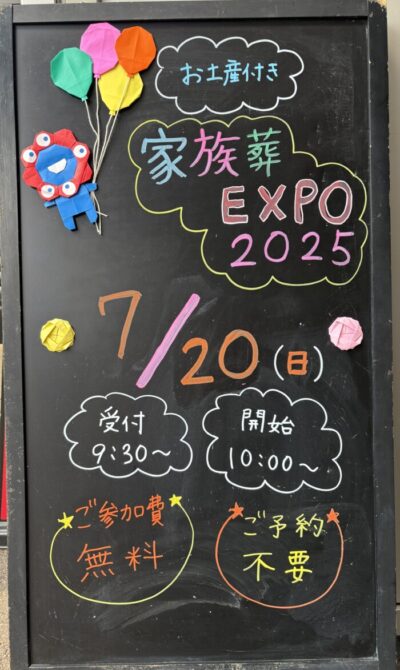 お土産付き
家族葬
EXPO
2025
7/20(日)
受付
9:30~
開始
10:00~
ご参加費
無料
ご予約
不要